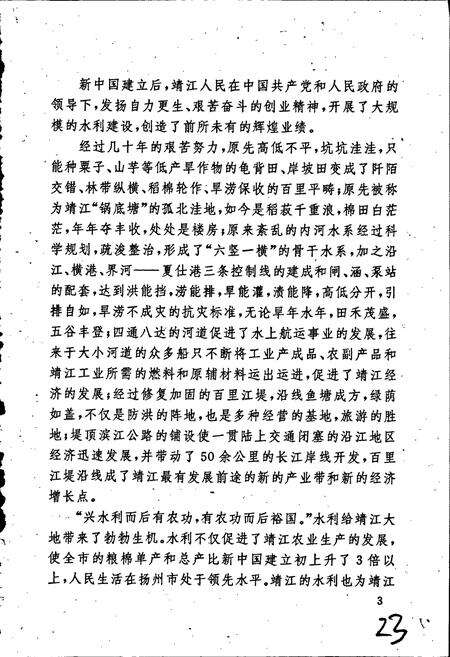 新中国建立后,靖江人民在中国共产党和人民政府的
领导下,发扬自力更生、艰苦奋斗的创业精神,开展了大规
模的水利建设,创造了前所未有的辉煌业绩。
经过几十年的艰苦努力,原先高低不平,坑坑洼洼,只
能种粟子、山芋等低产旱作物的龟背田、岸坡田变成了阡陌
交错、林带纵横、稻棉轮作、旱涝保收的百里平畴;原先被称
为靖江“锅底塘”的孤北洼地,如今是稻菽千重浪,棉田白茫
茫,年年夺丰收,处处是楼房;原来紊乱的内河水系经过科
学规划,疏浚整治,形成了“六竖一横”的骨干水系,加之沿
江、横港、界河——夏仕港三条控制线的建成和闸、涵、泵站
的配套,达到洪能挡,涝能排,旱能灌,渍能降,高低分开,引
排自如,旱涝不成灾的抗灾标准,无论旱年水年,田禾茂盛,
五谷丰登;四通八达的河道促进了水上航运事业的发展,往
来于大小河道的众多船只不断将工业产成品、农副产品和
靖江工业所需的燃料和原辅材料运出运进,促进了靖江经
济的发展;经过修复加固的百里江堤,沿线鱼塘成方,绿荫
如盖,不仅是防洪的阵地,也是多种经营的基地,旅游的胜
地;堤顶滨江公路的铺设使一贯陆上交通闭塞的沿江地区
经济迅速发展,并带动了50余公里的长江岸线开发,百里
江堤沿线成了靖江最有发展前途的新的产业带和新的经济
增长点。
“兴水利而后有农功,有农功而后裕国。”水利给靖江大
地带来了勃勃生机。水利不仅促进了靖江农业生产的发展,
使全市的粮棉单产和总产比新中国建立初上升了3倍以
上,人民生活在扬州市处于领先水平。靖江的水利也为靖江
3
23